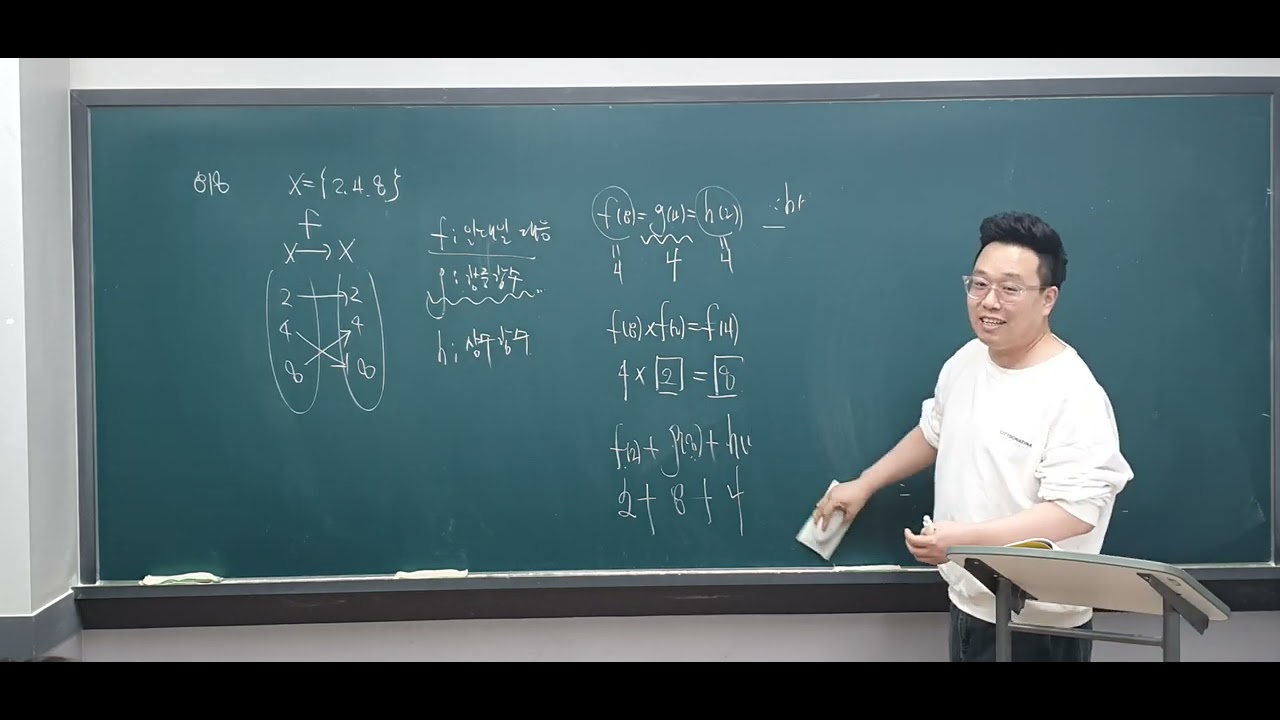 818
X={2.4.8}
f
X→X
2 2
4 4
8 8
f; 일대일 대응
g; 항등함수
h; 상수함수
f(8)=g(4)=h(2)
4 4 4
f(8)×f(2)=f(4)
4×2=8
f(2)+g(8)+h(4)
2+8+4